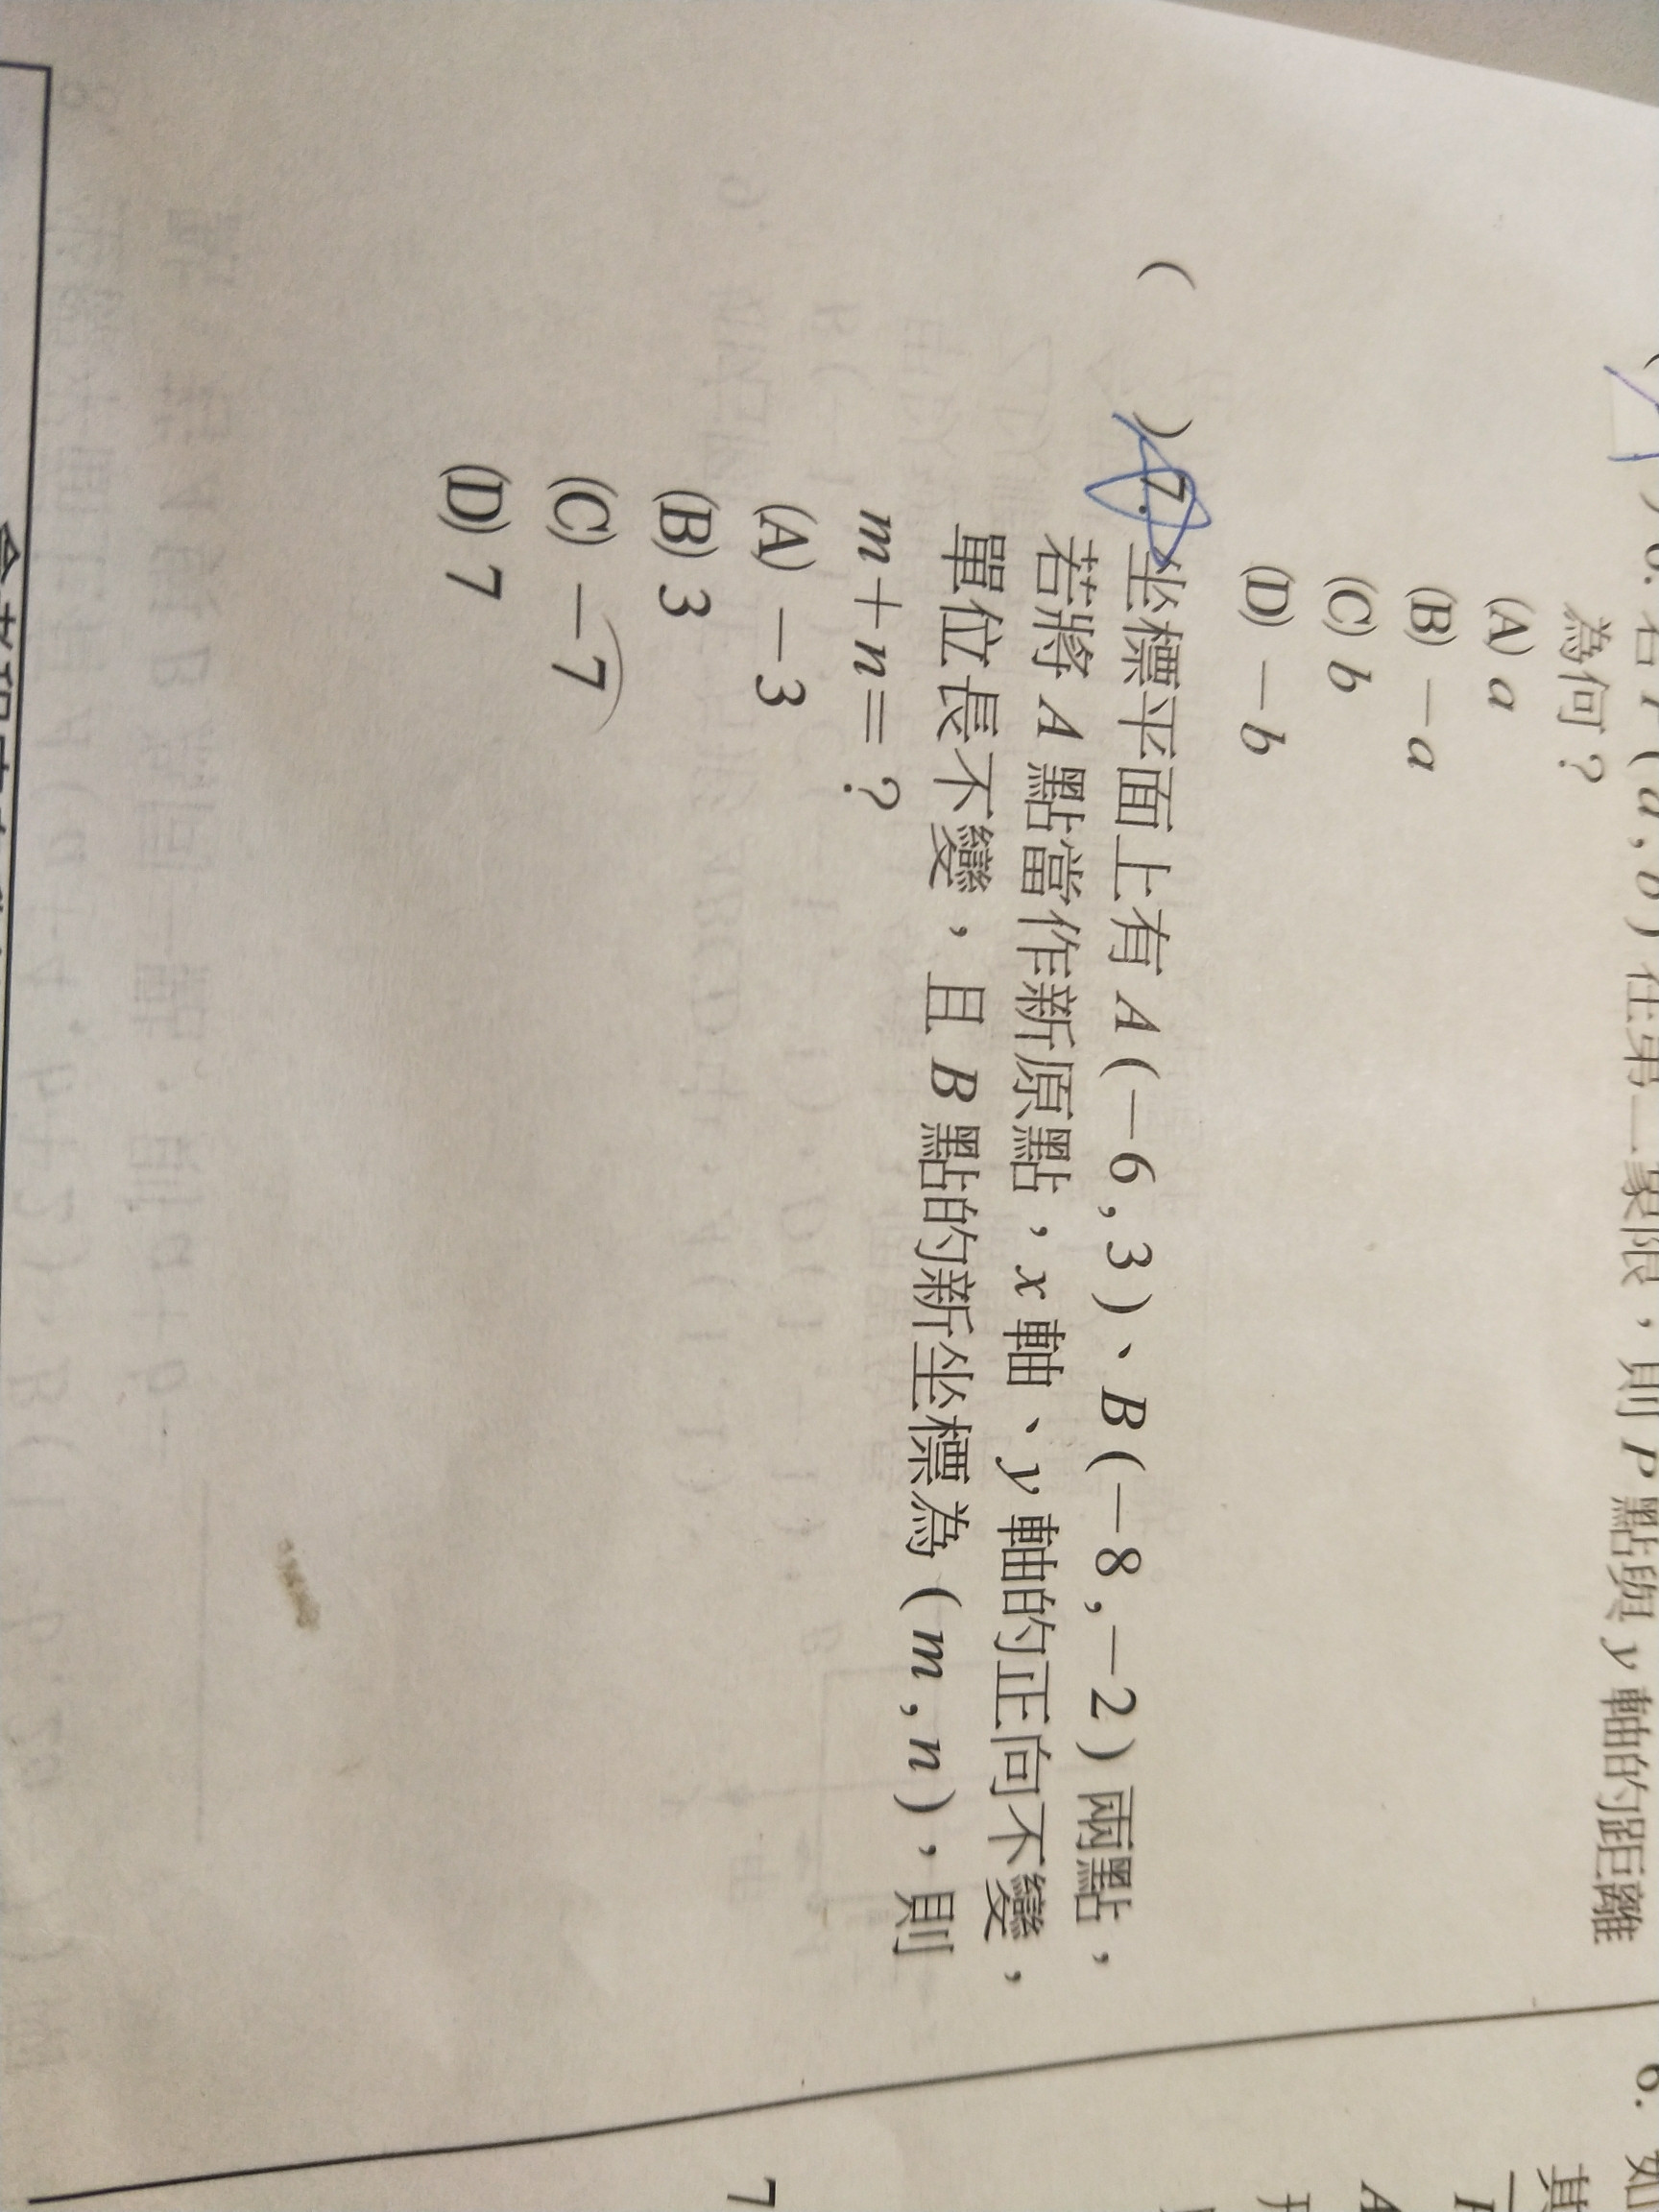 6. 若 P(a,b) 在第二象限，則 P 點與 y 軸的距離
為何？
(A) a
(B) －a
(C) b
(D) －b
(　) 7. 坐標平面上有 A(－6,3)、B(－8,－2)兩點，
若將 A 點當作新原點，x 軸、y 軸的正向不變，
單位長不變，且 B 點的新坐標為(m,n)，則
m＋n＝？
(A) －3
(B) 3
(C) －7
(D) 7
6. 如
其
7